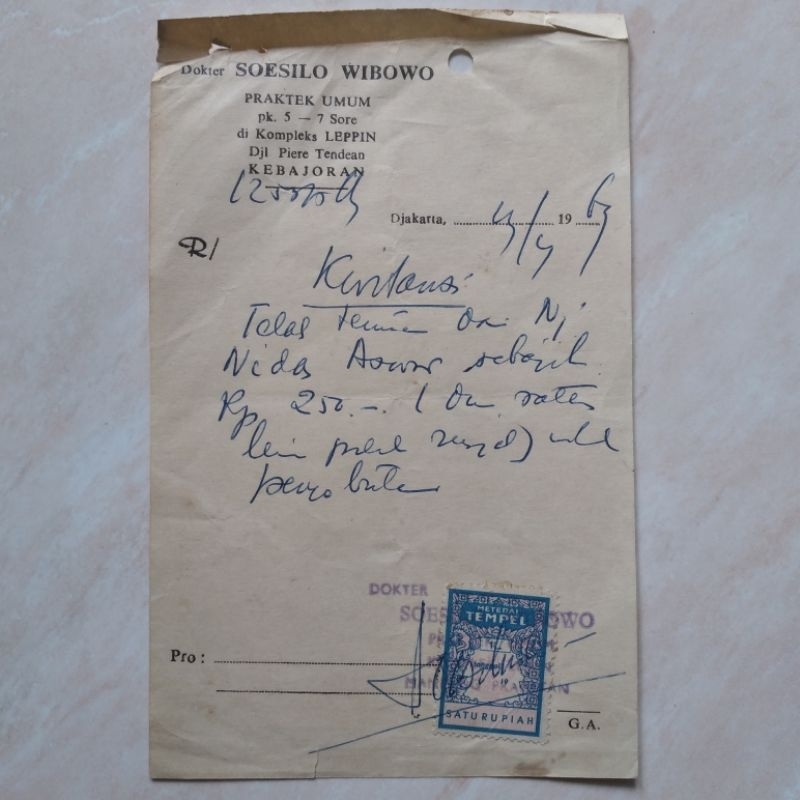 Dokter SOESILO WIBOWO
PRAKTEK UMUM
pk. 5 — 7 Sore
di Kompleks LEPPIN
Djl Piere Tendean
KEBAJORAN
Djakarta, 4/4 19 69
R/
Kwitansi
Telah terima dari Nj
Nidas Aswar sebanjak
Rp 250.-. ( dua ratus
lima puluh rupiah) untuk
pengobatan
DOKTER
METERAI
TEMPEL
SATU RUPIAH
Pro :
G.A.